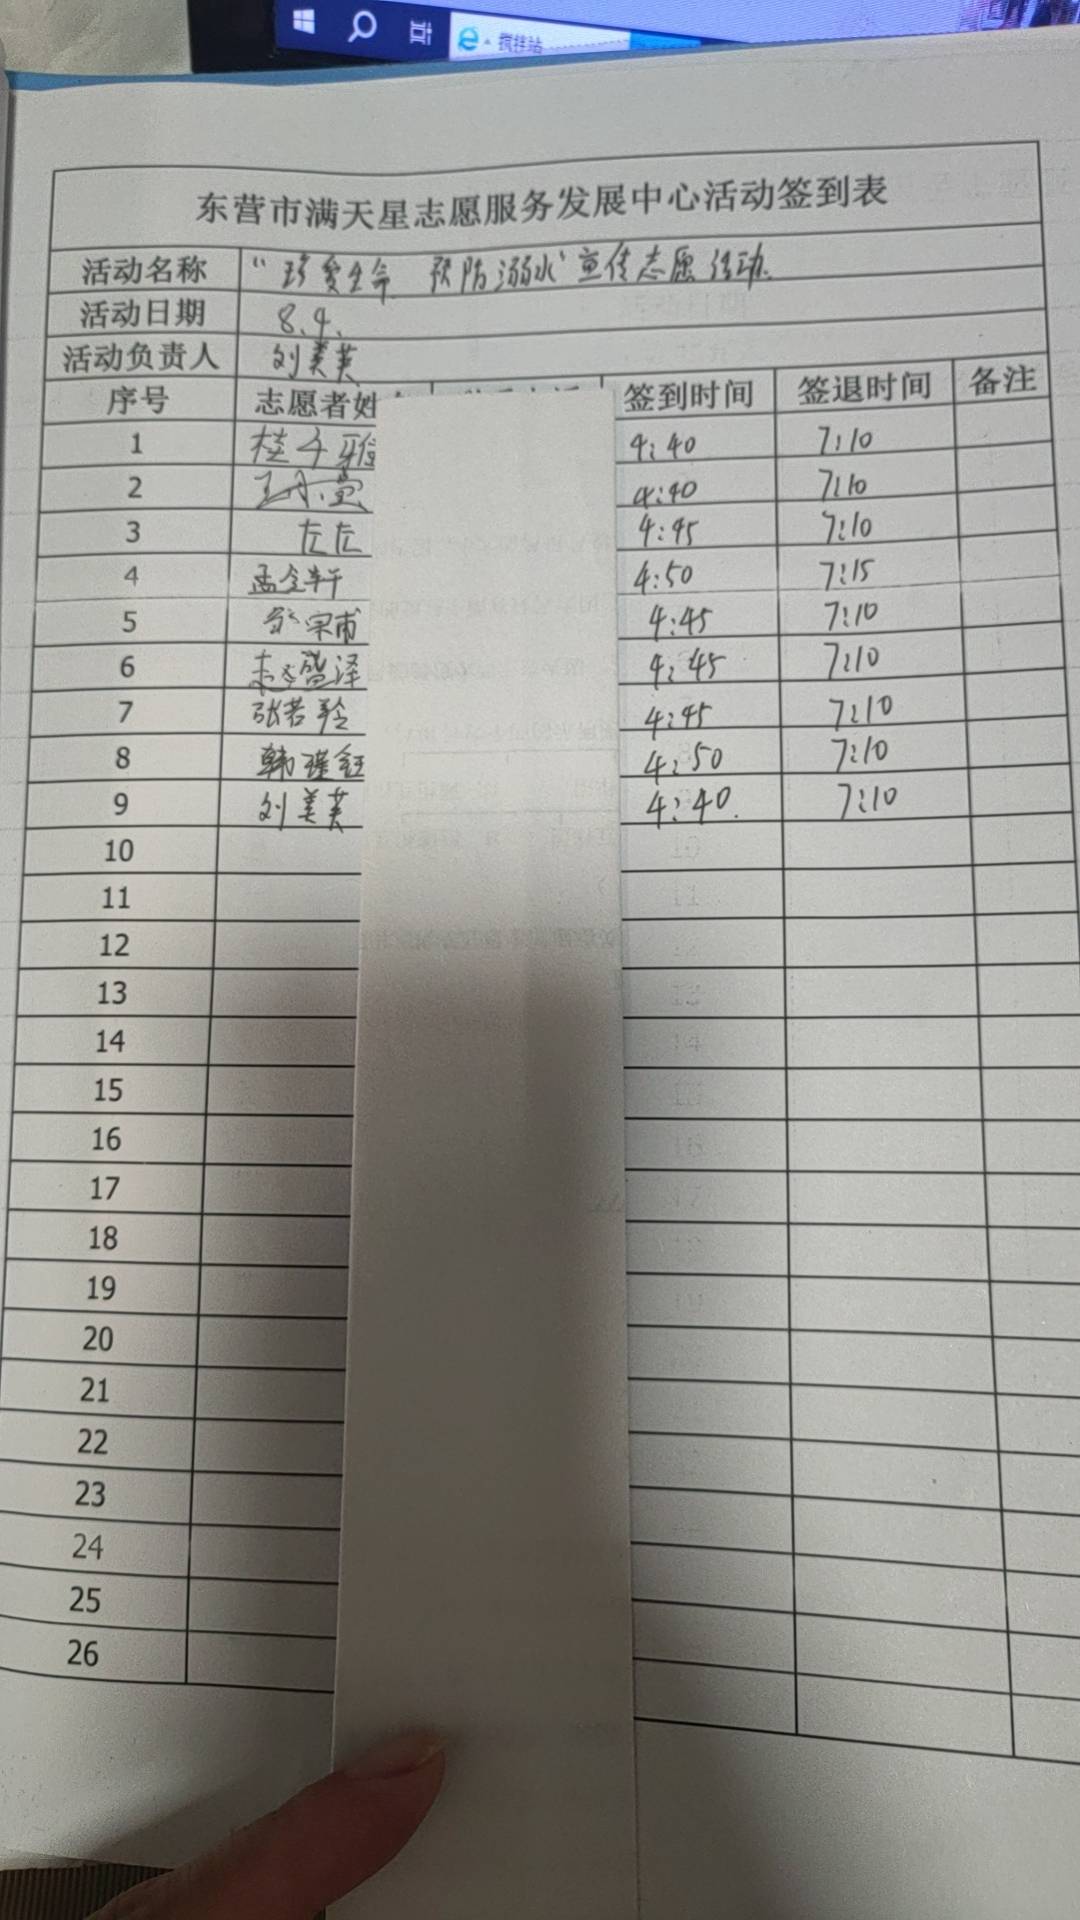 东营市满天星志愿服务发展中心活动签到表
活动名称 “珍爱生命 预防溺水”宣传志愿活动.
活动日期 8.4.
活动负责人 刘美芙
序号 志愿者姓 签到时间 签退时间 备注
1 桂子雅 4:40 7:10
2 王小萱 4:40 7:10
3 左左 4:45 7:10
4 孟全轩 4:50 7:15
5 宗甫 4:45 7:10
6 赵盛泽 4:45 7:10
7 张若玲 4:45 7:10
8 韩瑾钰 4:50 7:10
9 刘美芙 4:40. 7:10
10
11
12
13
14
15
16
17
18
19
20
21
22
23
24
25
26